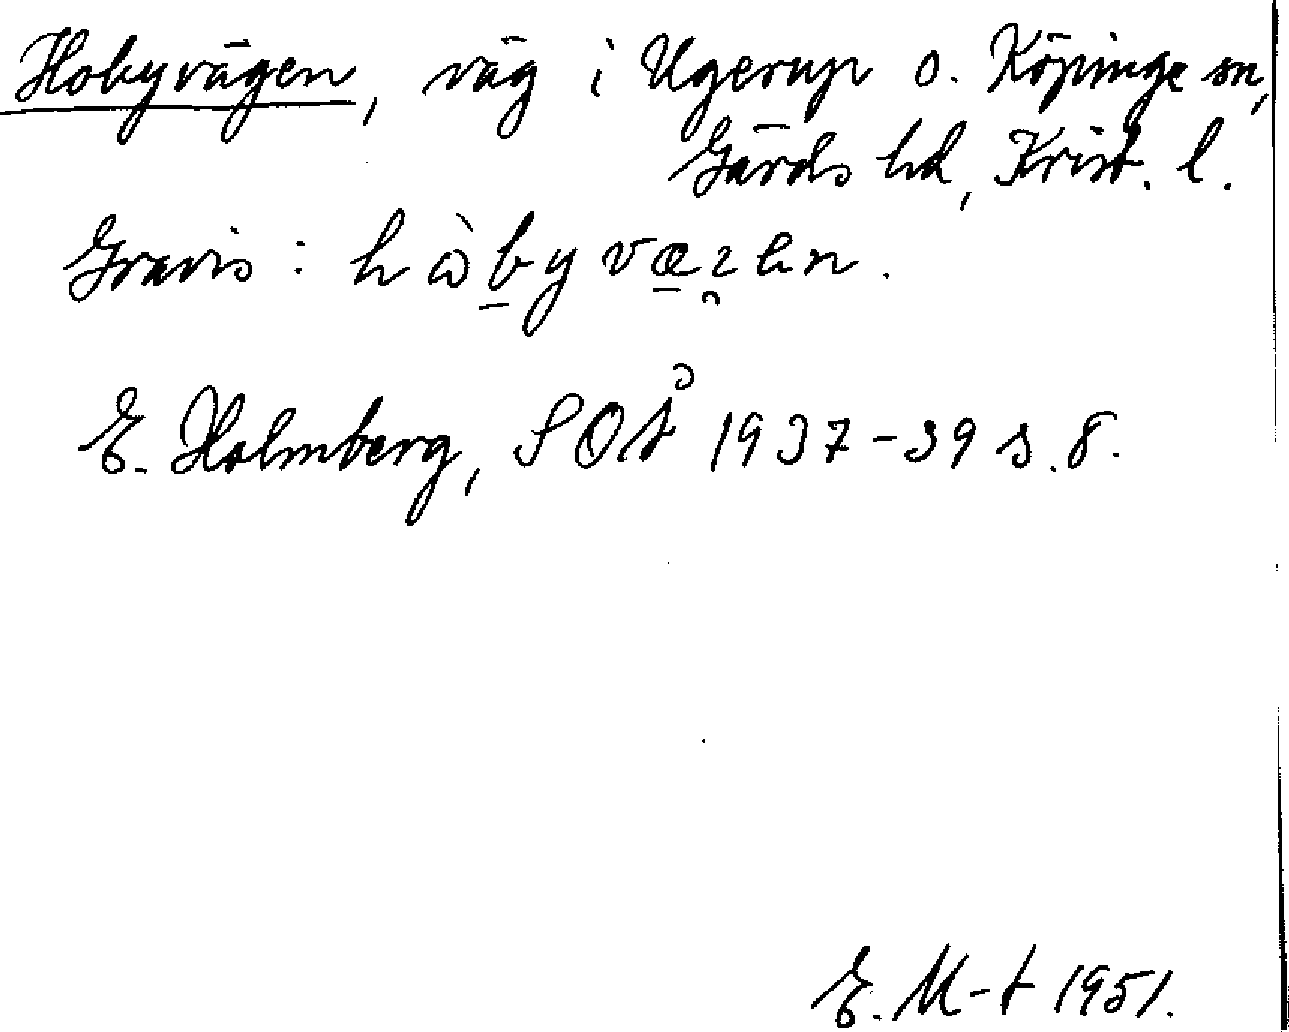 Hobyvägen, väg i Ugerup o. Köpinge sn,
Gärds hd, Krist. l.
Gravis: h
E. Holmberg, SOÅ 1937-39 s. 8.
E. M-t 1951.